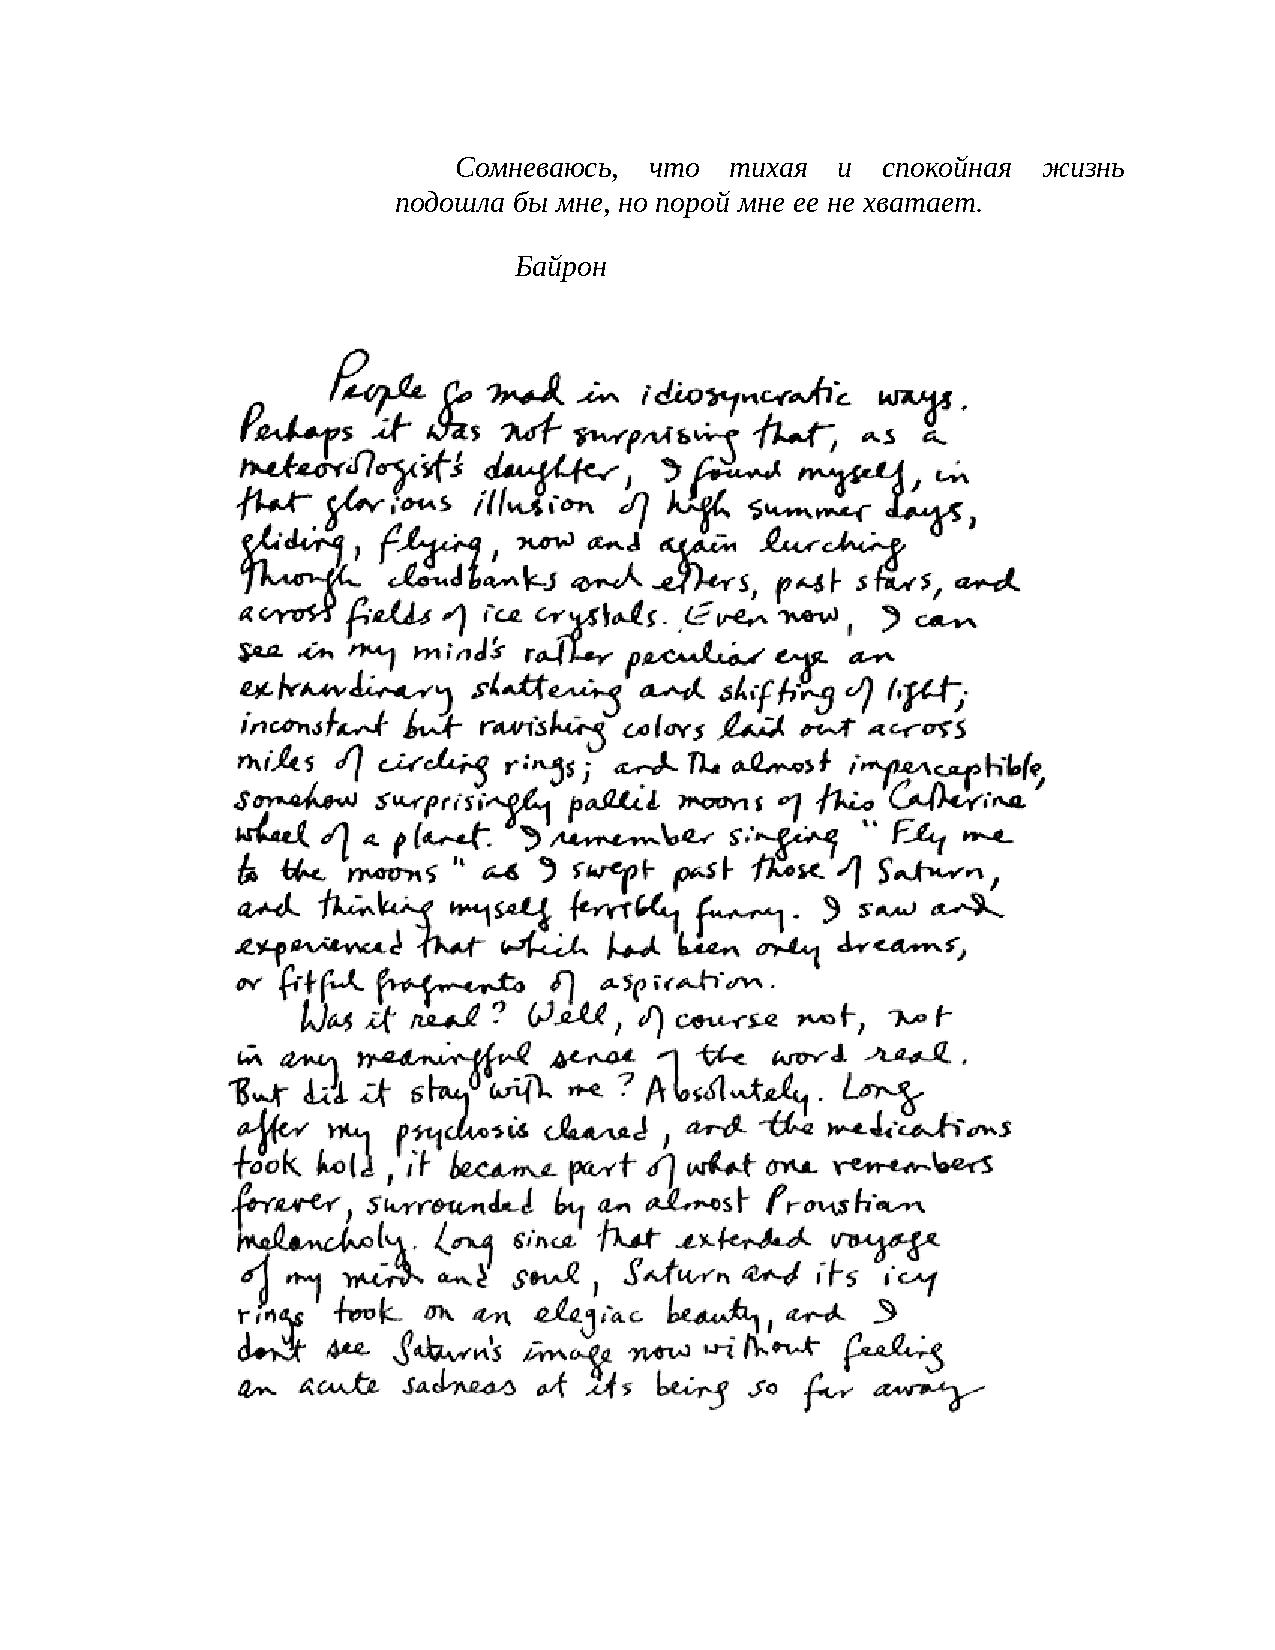 Сомневаюсь, что тихая и спокойная жизнь
подошла бы мне, но порой мне ее не хватает.
Байрон
People go mad in idiosyncratic ways.
Perhaps it was not surprising that, as a
meteorologist's daughter, I found myself, in
that glorious illusion of high summer days,
gliding, flying, now and again lurching
through cloudbanks and ethers, past stars, and
across fields of ice crystals. Even now, I can
see in my mind's rather peculiar eye an
extraordinary shattering and shifting of light;
inconstant but ravishing colors laid out across
miles of circling rings; and the almost imperceptible,
somehow surprisingly pallid moons of this Catherine
wheel of a planet. I remember singing "Fly me
to the moons" as I swept past those of Saturn,
and thinking myself terribly funny. I saw and
experienced that which had been only dreams,
or fitful fragments of aspiration.
Was it real? Well, of course not, not
in any meaningful sense of the word real.
But did it stay with me? Absolutely. Long
after my psychosis cleared, and the medications
took hold, it became part of what one remembers
forever, surrounded by an almost Proustian
melancholy. Long since that extended voyage
of my mind and soul, Saturn and its icy
rings took on an elegiac beauty, and I
don't see Saturn's image now without feeling
an acute sadness at its being so far away